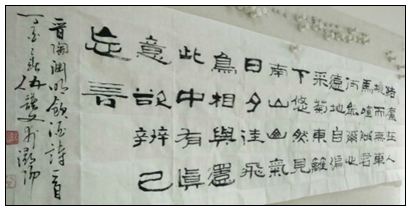 結廬在人
境而無車
馬喧問君
何能爾心
遠地自偏
采菊東籬
下悠然見
南山氣
日夕佳飛
鳥相與還
此中有真
意欲辨已
忘言
晉陶淵明飲酒詩一首